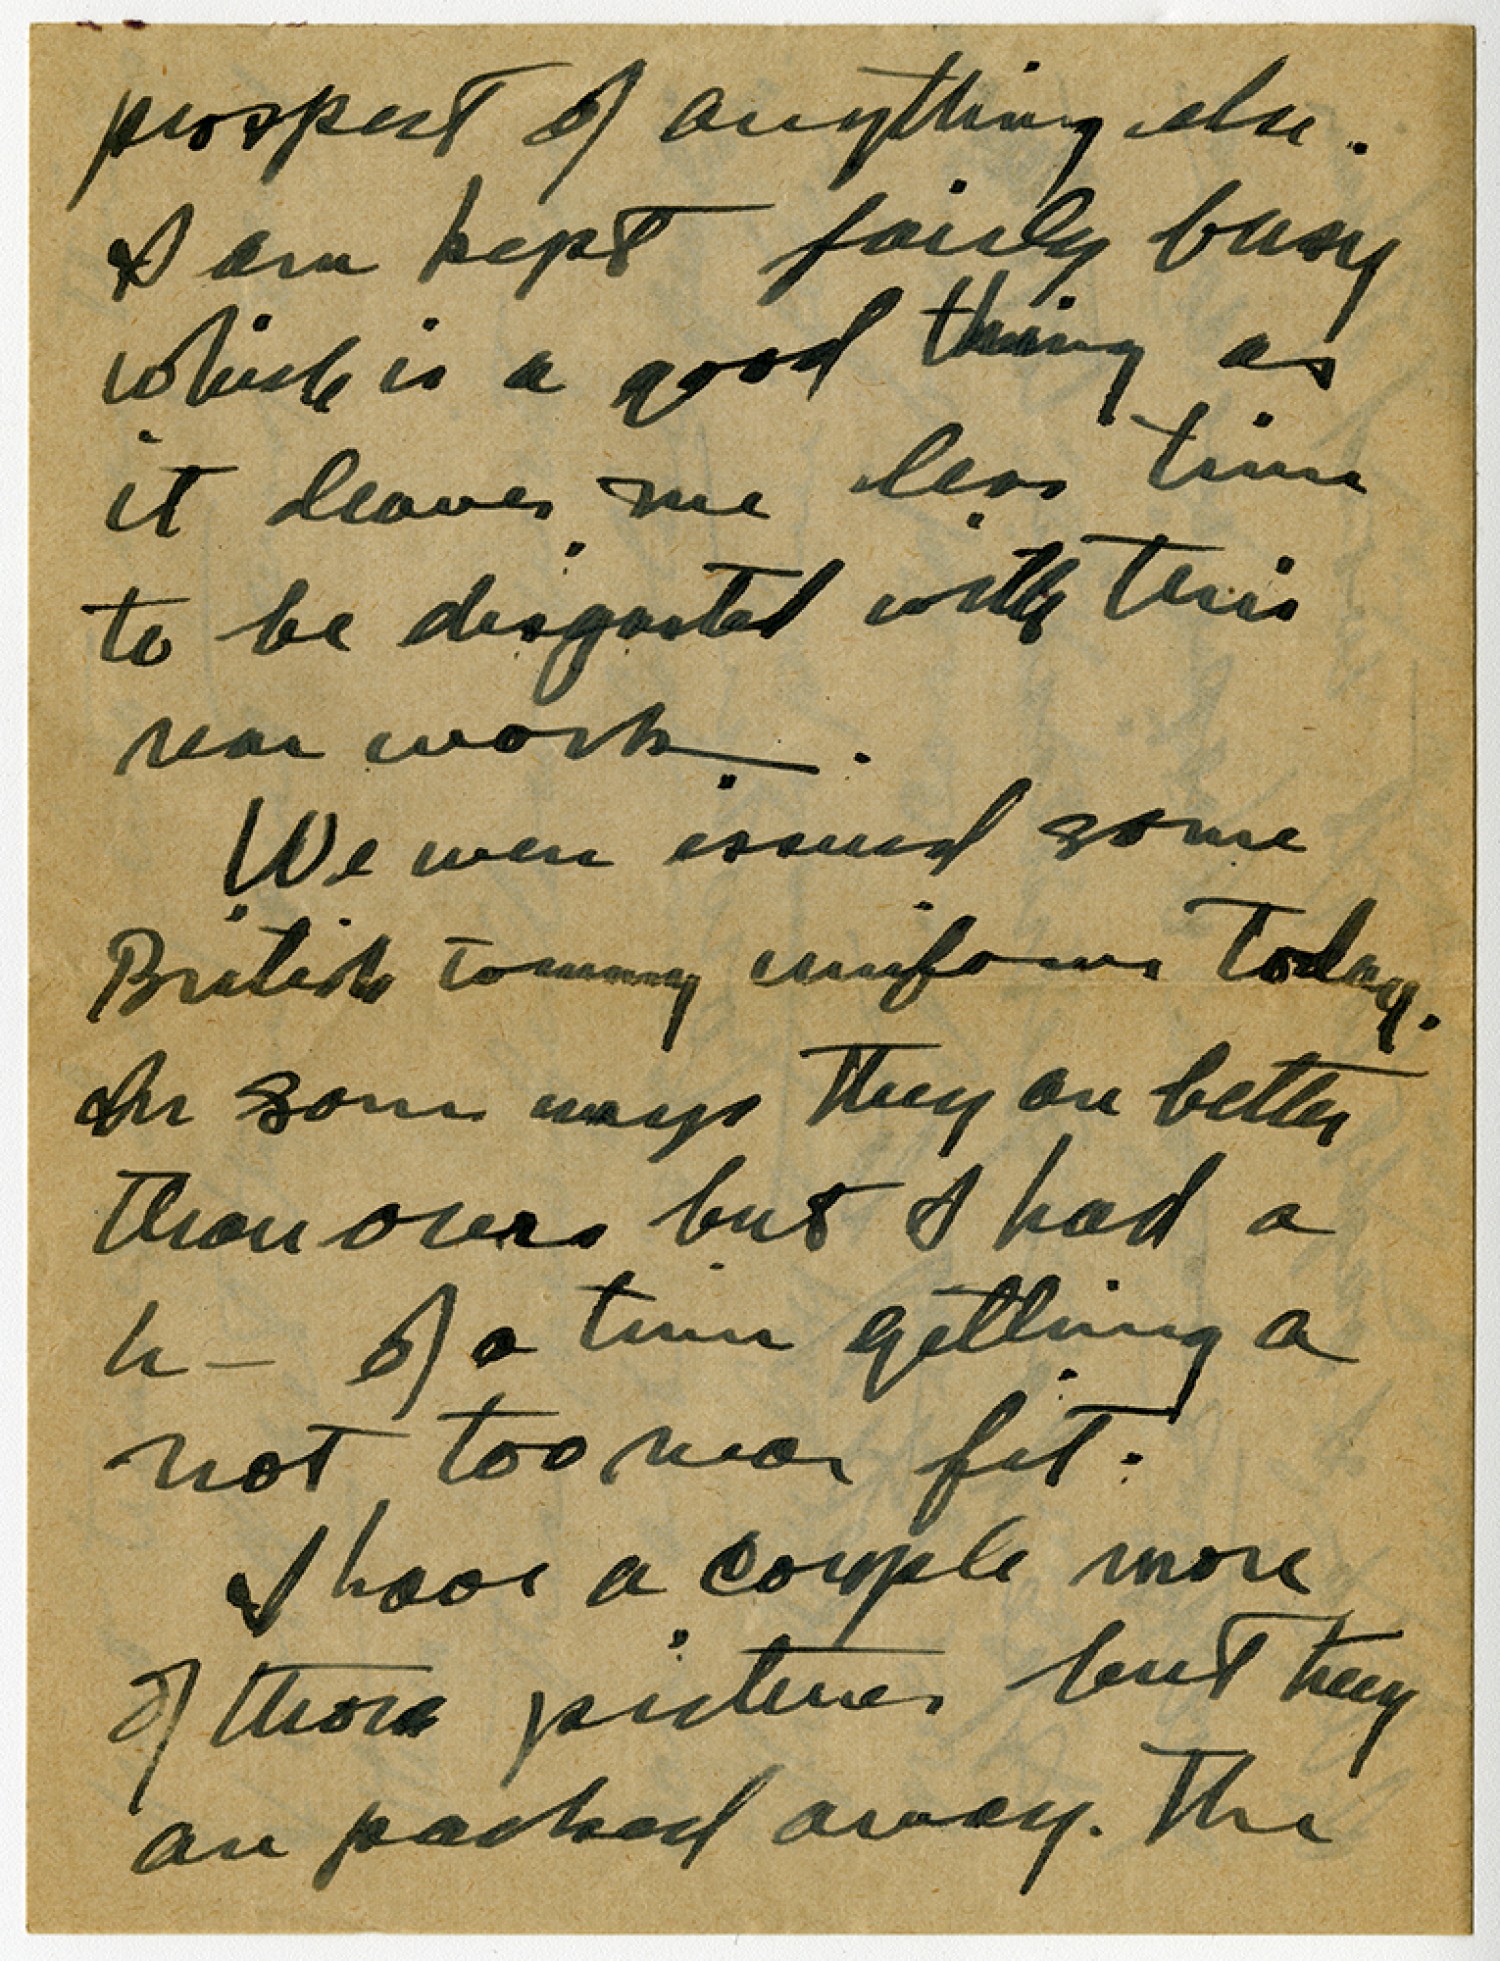 prospect of anything else.
I am kept fairly busy
which is a good thing as
it leaves me less time
to be disgusted with this
rear work.
We were issued some
British tommy uniforms today.
In some ways they are better
than ours but I had a
h— of a time getting a
not too near fit.
I have a couple more
of those pictures but they
are packed away. The